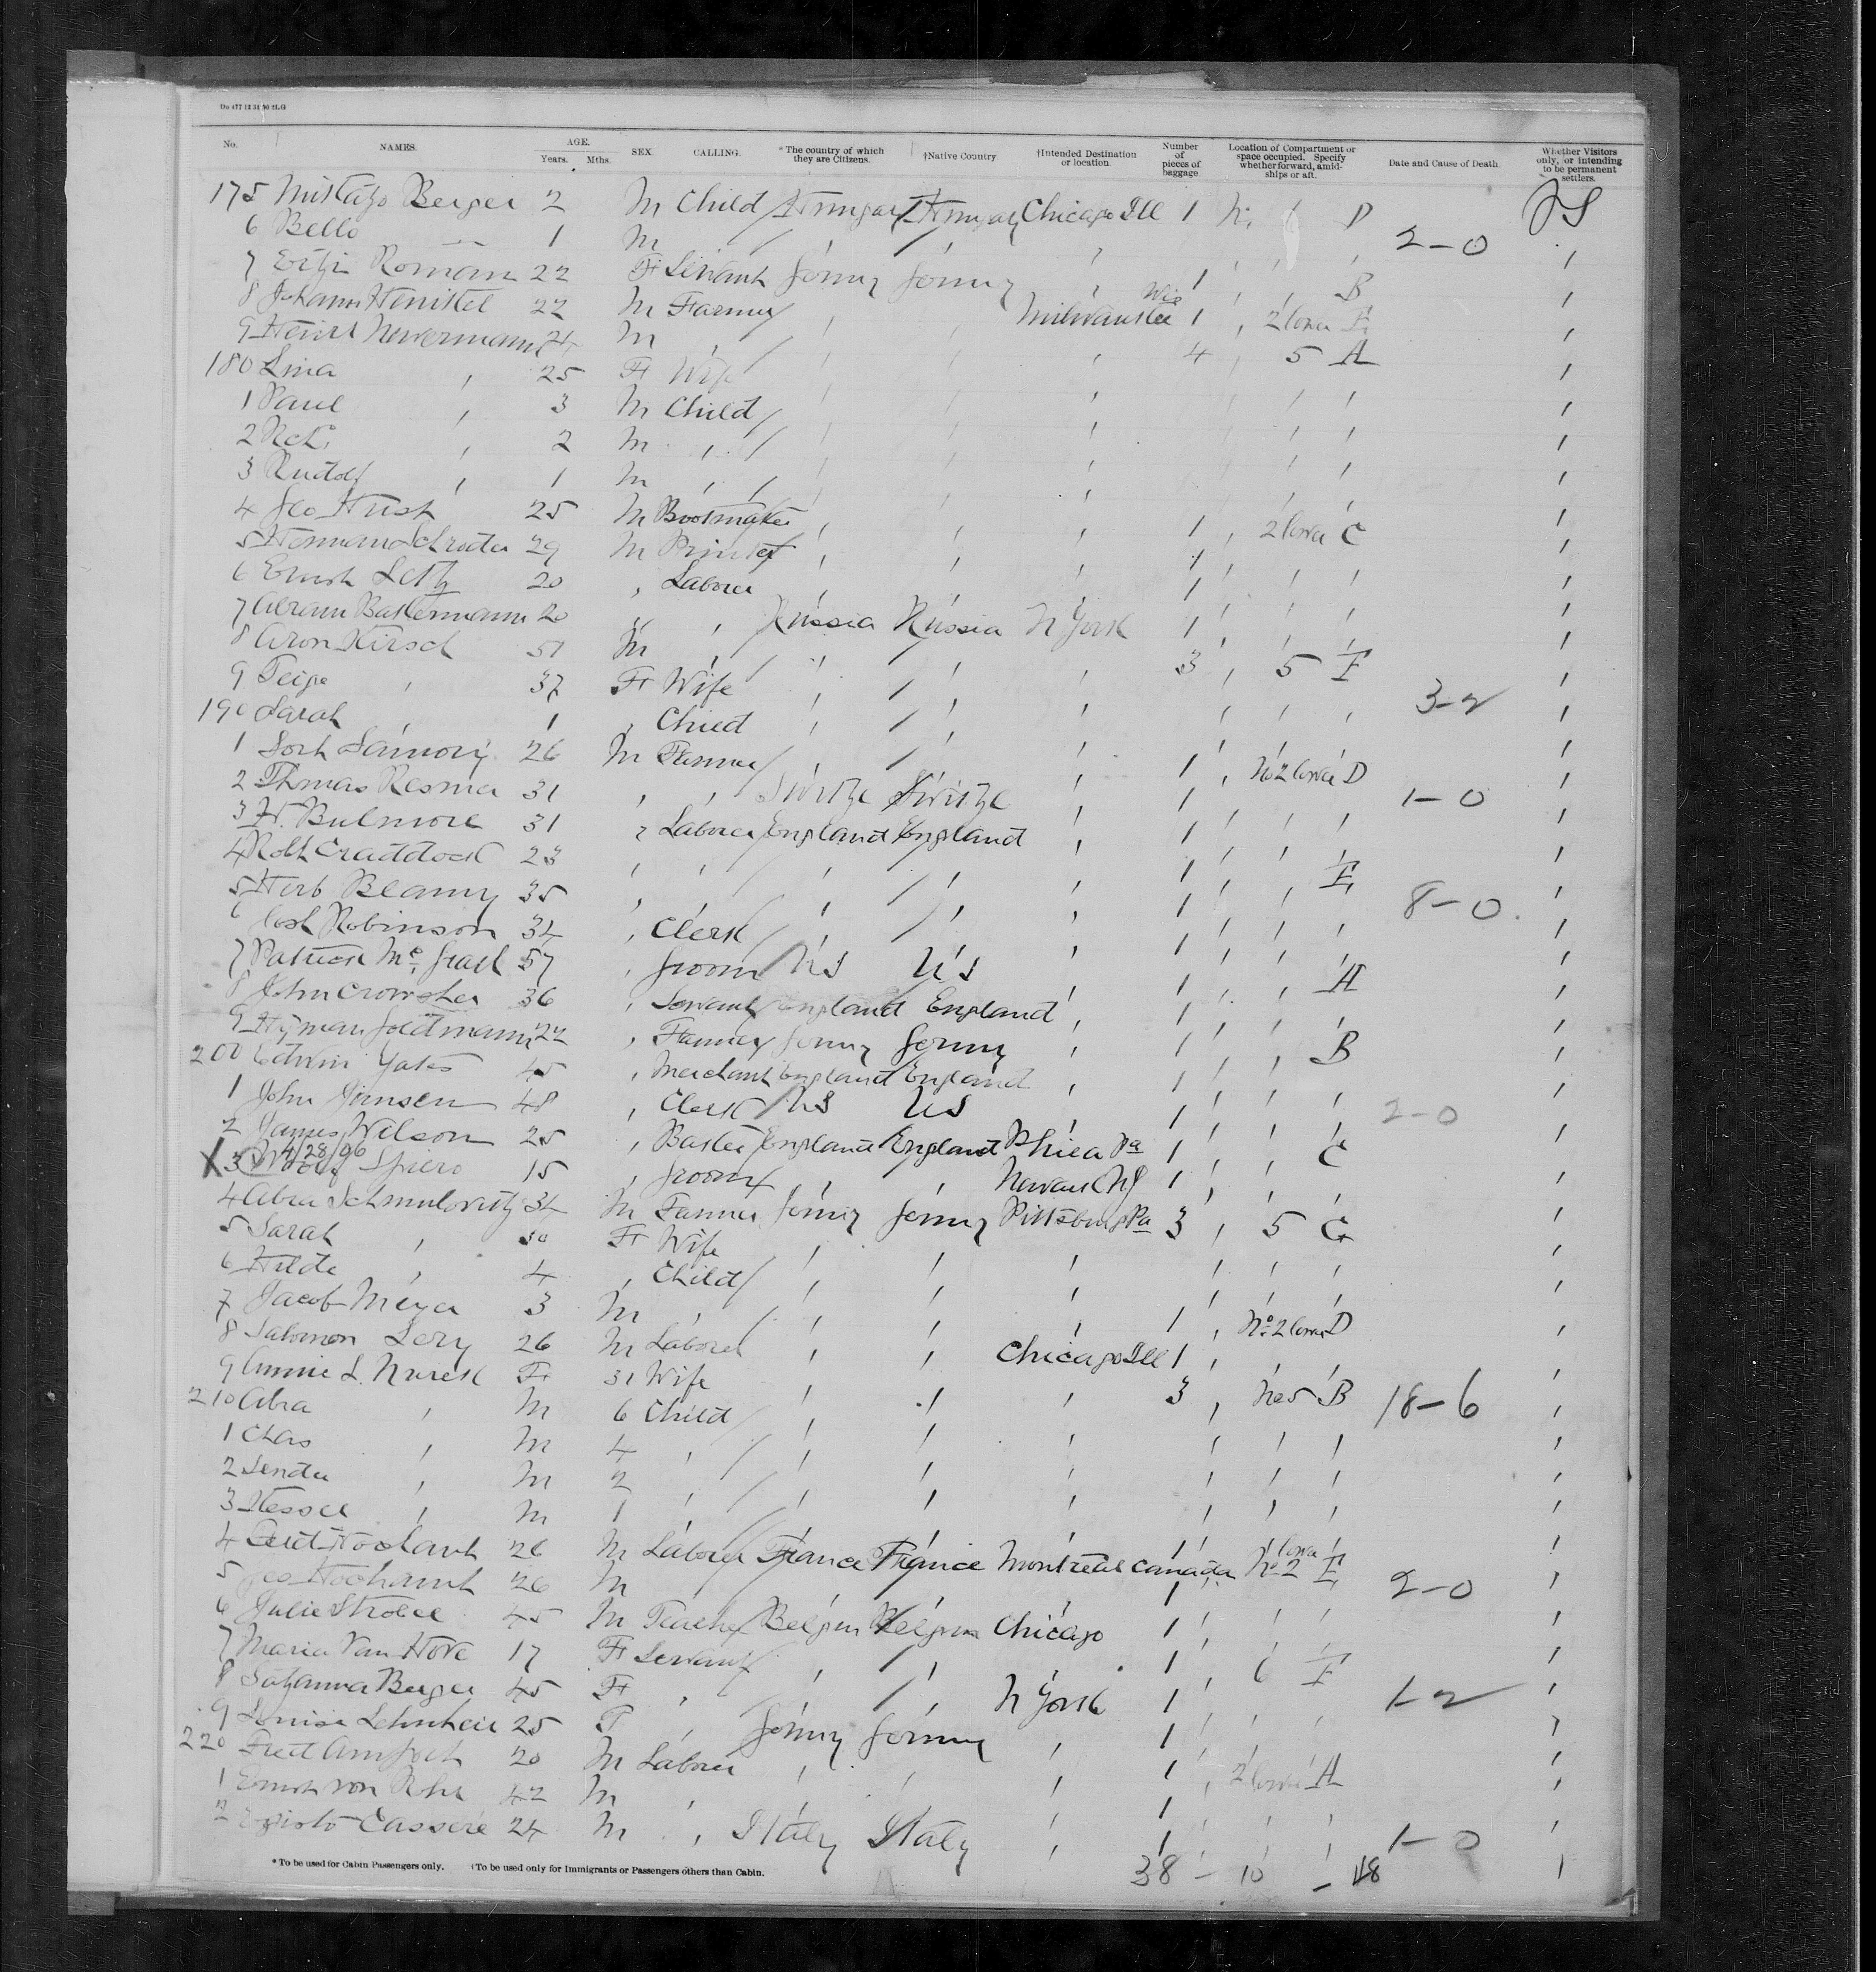 No. NAMES. AGE. Years. Mths. SEX. CALLING. *The country of which they are Citizens. †Native Country †Intended Destination or location. Number of pieces of baggage Location of Compartment or space occupied. Specify whether forward, amidships or aft. Date and Cause of Death. Whether Visitors only, or intending to be permanent settlers.
175 Berger 2 M Child Hungary Hungary Chicago Ill 1 D
6 Bello 1 M 2-0
7 Roman 22 F Servant Germy Germy 1 B
8 Johann Henistel 22 M Farmer Milwaukee Wis 1 2 lower E
9 Heinr Newermann M 4 5 A
180 Lina 25 F Wife
1 Paul 3 M Child
2 2 M
3 Rudolf 1 M
4 Geo Hush 25 M Bootmaker 1 2 lower C
5 Hermann Schroder 29 M Printer 1
6 Ernst 20 Laborer 1
7 Abram Bastermann 20 Russia Russia N York 1
8 Aron Hirsch 51 M 3 5 E
9 Feige 37 F Wife 3-2
190 Sarah 1 Child
1 26 M Farmer 1 No 2 lower D
2 Thomas Resmer 31 Switze Switze 1 1-0
3 H. Bulmore 31 Laborer England England 1
4 Robt Craddock 23 1 E
5 Herb Beamy 35 1 8-0
6 Josh Robinson 34 Clerk 1
7 Patrick Mc Grail 57 Groom US US 1 A
8 John Crowsher 36 Servant England England 1
9 Hyman Goldmann 22 Farmer Germy Germy 1 B
200 Edwin Yates 45 Merchant England England 1
1 John Jonsen 48 Clerk US US 1 2-0
2 James Wilson 25 England England Phila Pa 1 C
X 3 4/28/96 Spiero 15 Groom Newark NJ 1
4 Abra Schmulovitz 34 M Farmer Germy Germy Pittsburg Pa 3 5 C
5 Sarah 30 F Wife
6 Hilde 4 Child
7 Jacob Meyer 3 M 1 No 2 lower D
8 Salomon Levy 26 M Laborer Chicago Ill 1
9 Annie L. Nurek F 31 Wife 3 No 5 B 18-6
210 Abra M 6 Child
1 Chas M 4
2 Sender M 2
3 Hessel M 1
4 26 M Laborer France France Montreal Canada 1 No 2 lower E
5 Geo Hochant 26 M 1 2-0
6 Julie Strobel 45 M Teacher Belgium Belgium Chicago 1
7 Maria Van Hove 17 F Servant 1 6 F
8 Sazanna Berger 45 F N York 1 1-2
9 Louisa Lehnheir 25 F Germy Germy 1
220 20 M Laborer 1 2 lower A
1 Ernst von Rohr 42 M 1
2 Cassere 24 M Italy Italy 1 1-0
38 - 10 - 48
*To be used for Cabin Passengers only. †To be used only for Immigrants or Passengers others than Cabin.